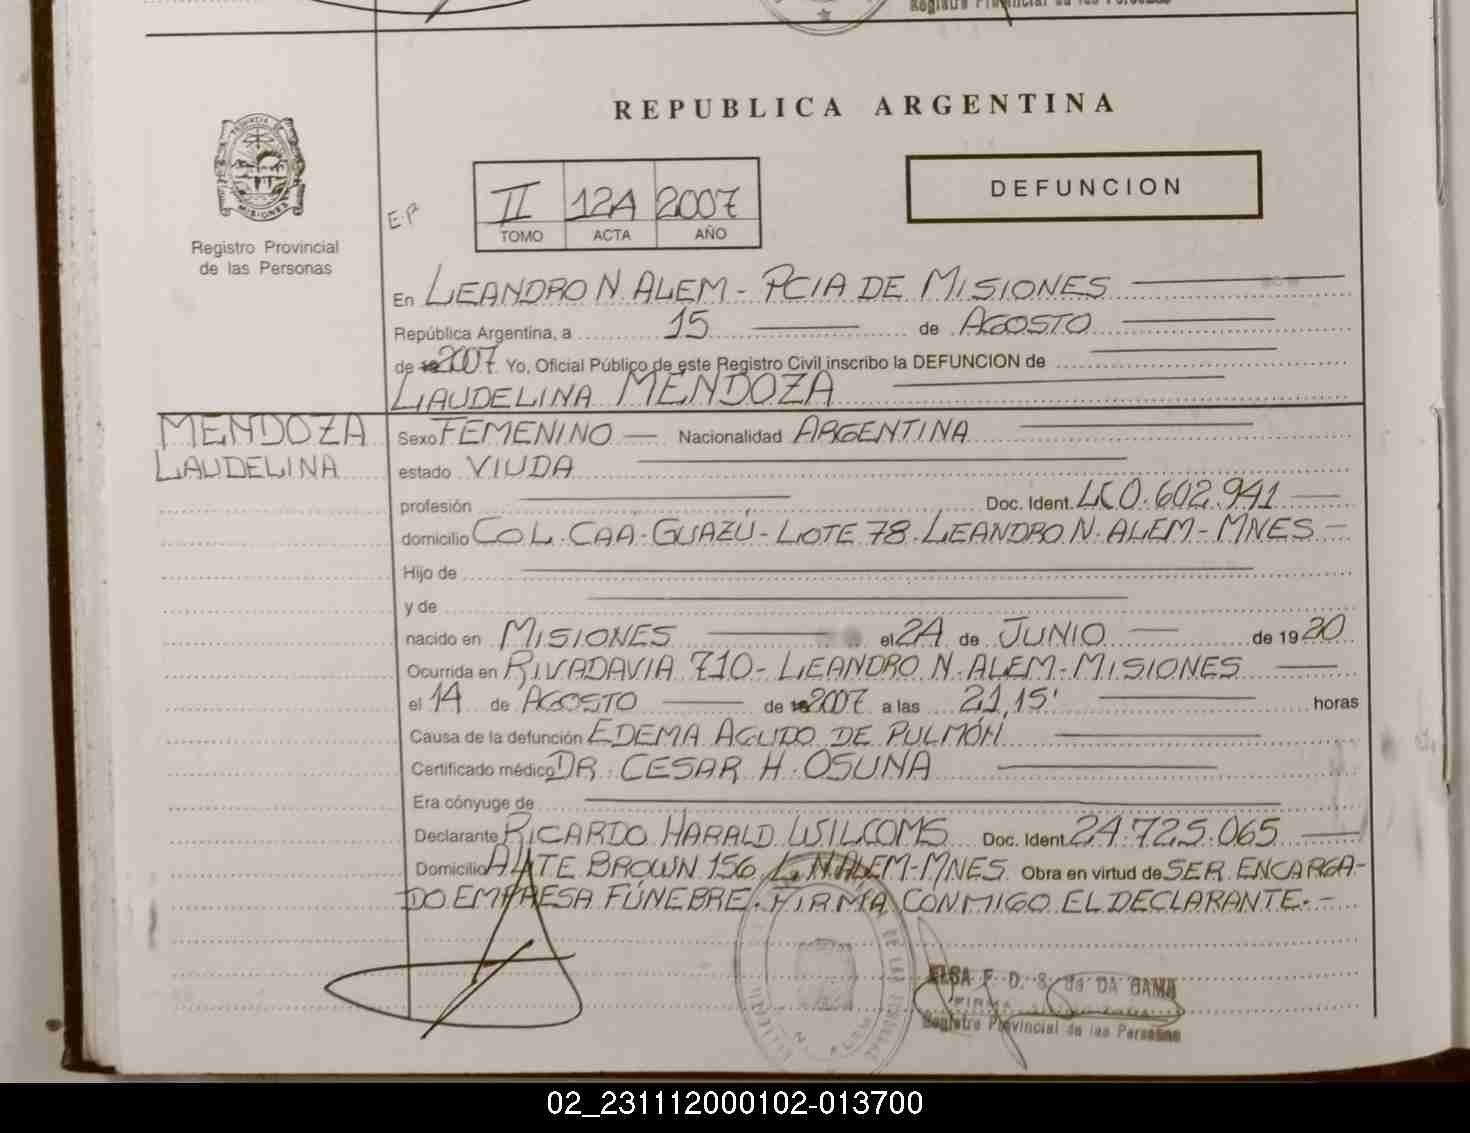 Registro Provincial de las Personas
REPUBLICA ARGENTINA
Registro Provincial
de las Personas
E.P
II 124 2007
TOMO ACTA AÑO
DEFUNCION
En LEANDRO N. ALEM - PCIA DE MISIONES
República Argentina, a 15 de AGOSTO
de 2007. Yo, Oficial Público de este Registro Civil inscribo la DEFUNCION de
LAUDELINA MENDOZA
MENDOZA
LAUDELINA
Sexo FEMENINO — Nacionalidad ARGENTINA
estado VIUDA
profesión Doc. Ident. LC 0.602.941
domicilio COL. CAÁ-GUAZÚ - LOTE 78. LEANDRO N. ALEM - MNES -
Hijo de
y de
nacido en MISIONES el 24 de JUNIO de 19
Ocurrida en RIVADAVIA 710 - LEANDRO N. ALEM - MISIONES
el 14 de AGOSTO de 2007 a las 21,15' horas
Causa de la defunción EDEMA AGUDO DE PULMÓN
Certificado médico DR. CESAR H. OSUNA
Era cónyuge de
Declarante RICARDO HARALD WILCOMS Doc. Ident. 24.725.065
Domicilio ALTE BROWN 156. L.N.ALEM-MNES. Obra en virtud de SER ENCARGA-
DO EMPRESA FÚNEBRE. FIRMA CONMIGO EL DECLARANTE. -
ELSA F. D. S. de DA GAMA
FIRMA
Registro Provincial de las Personas
02_231112000102-013700